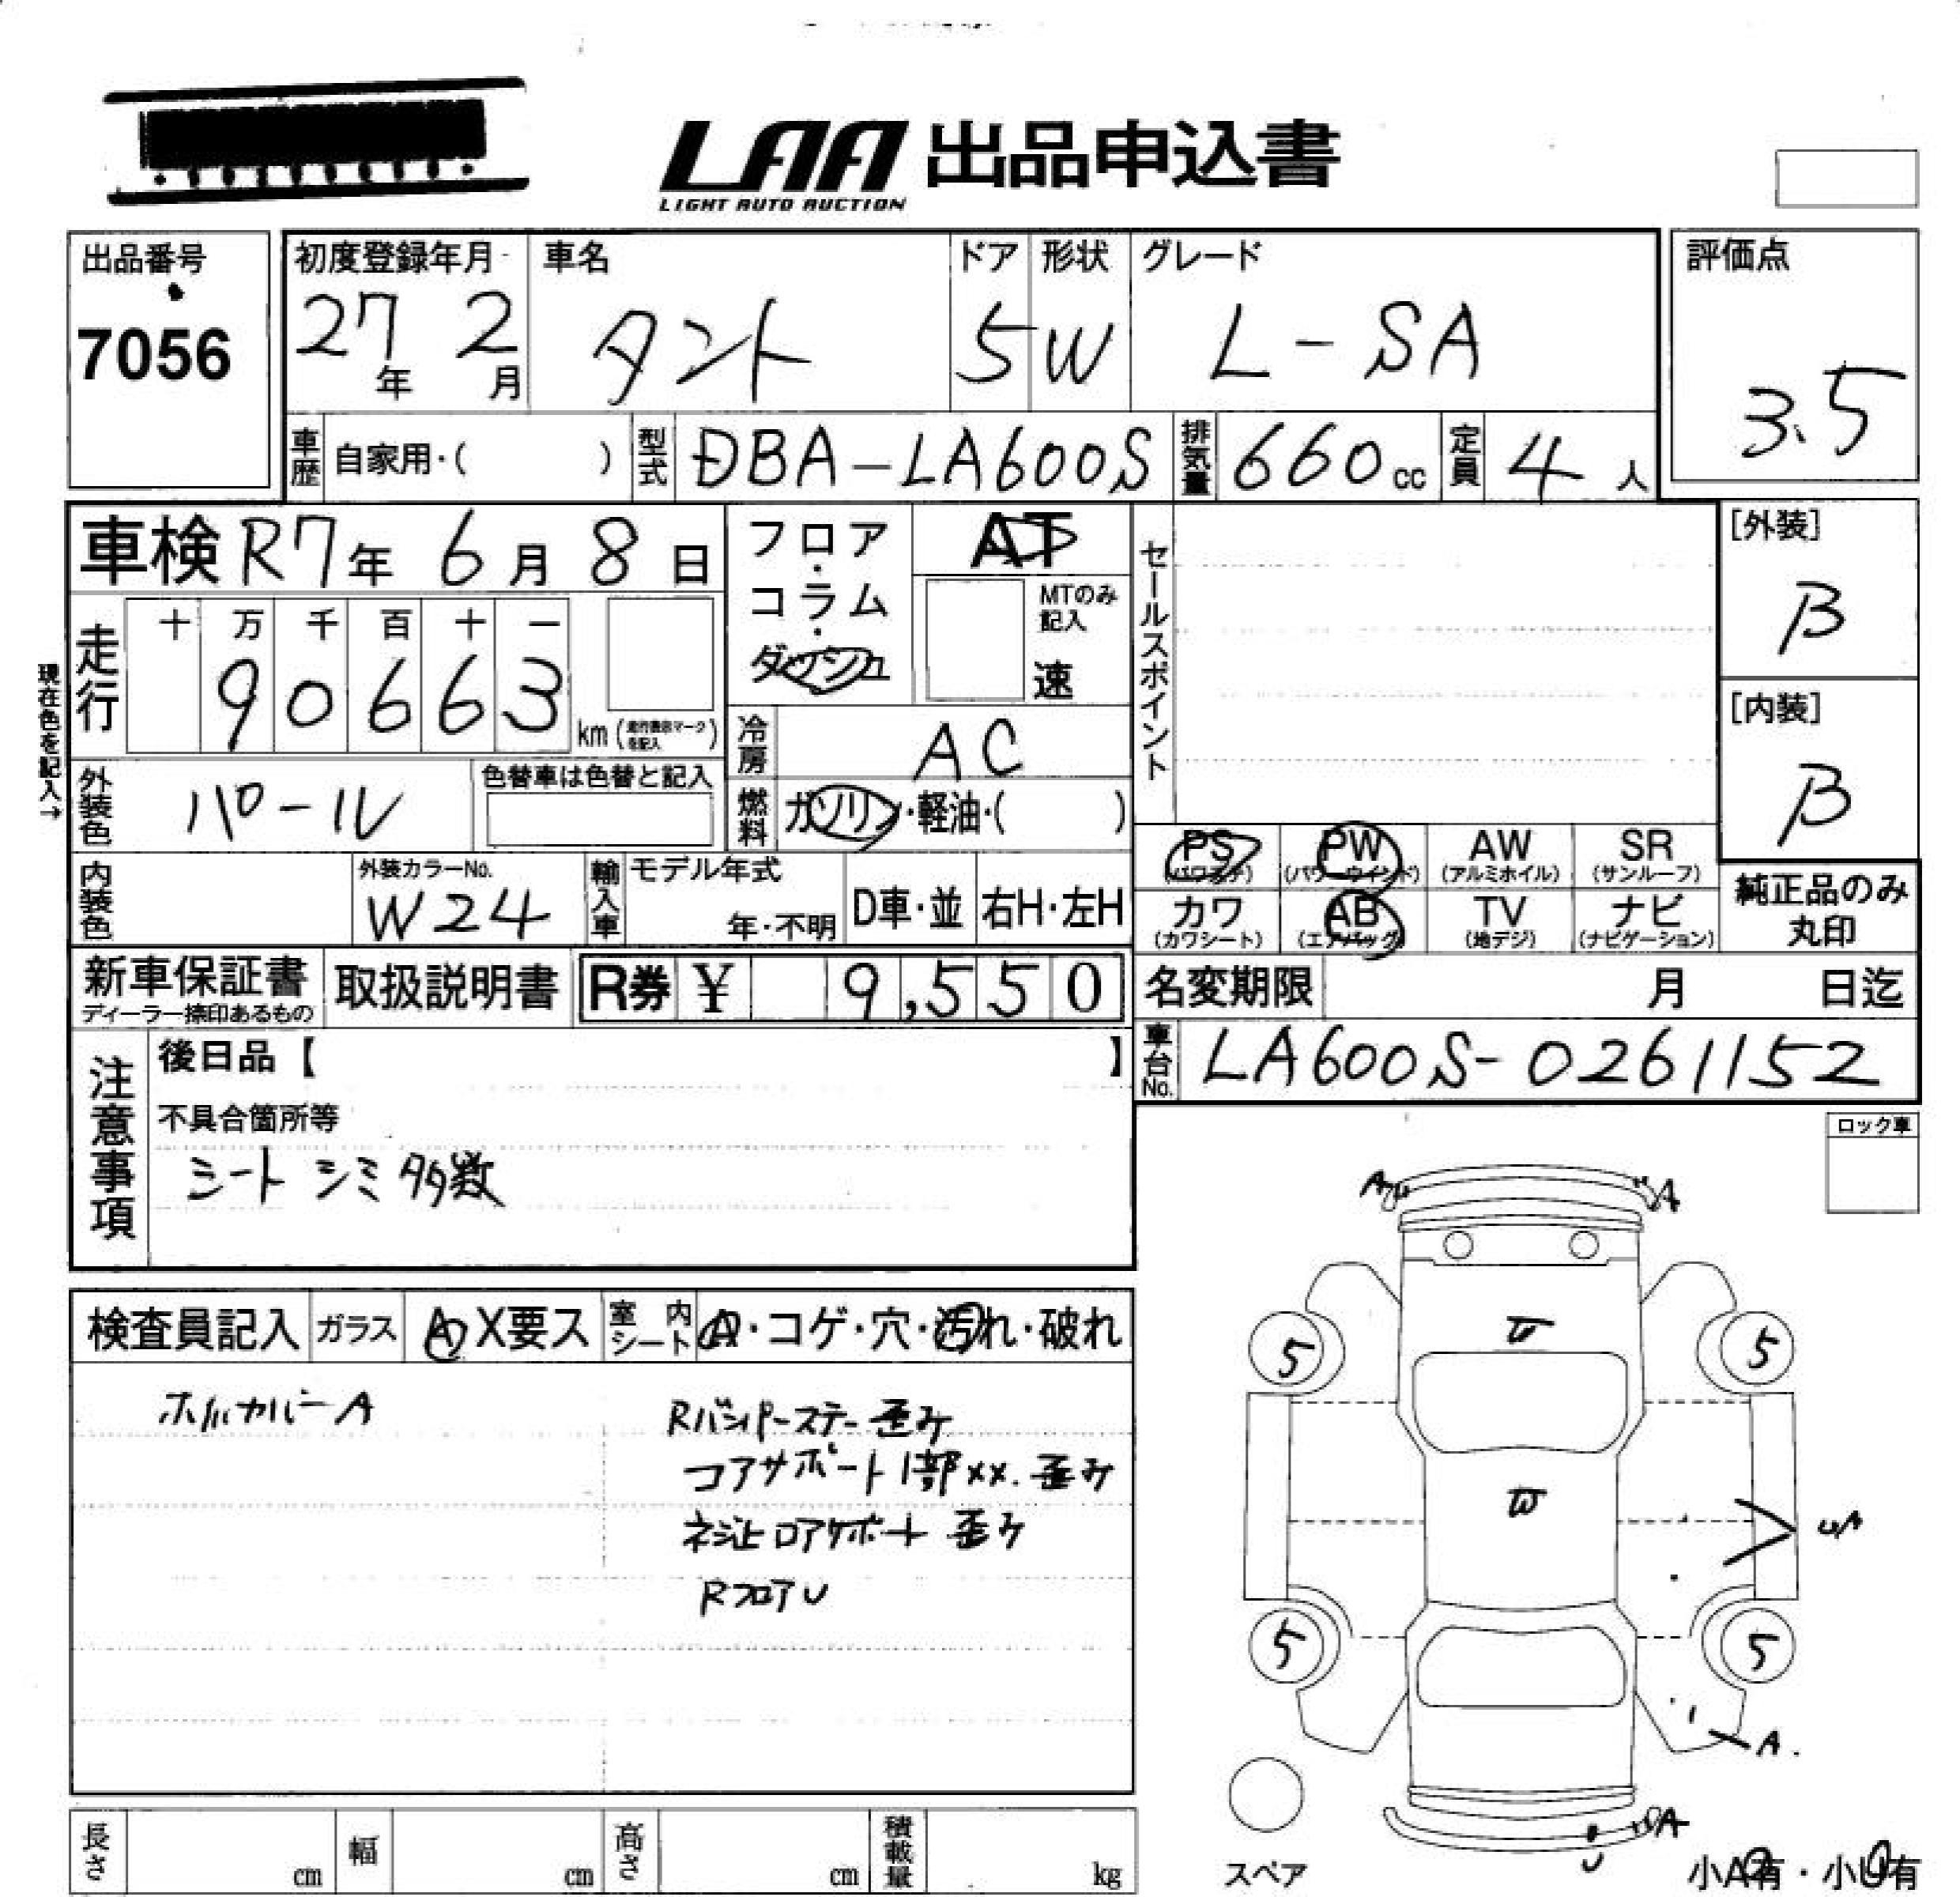 LAA 出品申込書
LIGHT AUTO AUCTION
出品番号
7056
初度登録年月
27年 2月
車名
タント
ドア
5
形状
W
グレード
L-SA
評価点
3.5
車歴 自家用・( )
型式 DBA-LA600S
排気量 660cc
定員 4人
車検 R7年 6月 8日
フロア・コラム・ダッシュ
AT
MTのみ記入
速
セールスポイント
[外装]
B
[内装]
B
現在色を記入→
走行
十 万 千 百 十 一
9 0 6 6 3 km
冷房 AC
外装色 パール
色替車は色替と記入
燃料 ガソリン・軽油・( )
PS (パワステ) PW (パワーウインド) AW (アルミホイル) SR (サンルーフ)
カワ (カワシート) AB (エアバッグ) TV (地デジ) ナビ (ナビゲーション)
純正品のみ丸印
内装色
外装カラーNo.
W24
輸入車 モデル年式
年・不明
D車・並 右H・左H
新車保証書
ディーラー捺印あるもの
取扱説明書
R券 ¥ 9,550
名変期限 月 日迄
車台No. LA600S-0261152
注意事項
後日品【 】
不具合箇所等
シート シミ 多数
ロック車
検査員記入 ガラス A X要ス 室内シート A・コゲ・穴・汚れ・破れ
ホイルカバー A
Rバンパーステー 歪み
コアサポート 1部××. 歪み
ネジ止ロアサポート 歪み
Rフロア U
A A
5 5
W
W
UA
5 5
A.
A
U
スペア
小A有・小U有
長さ cm 幅 cm 高さ cm 積載量 kg